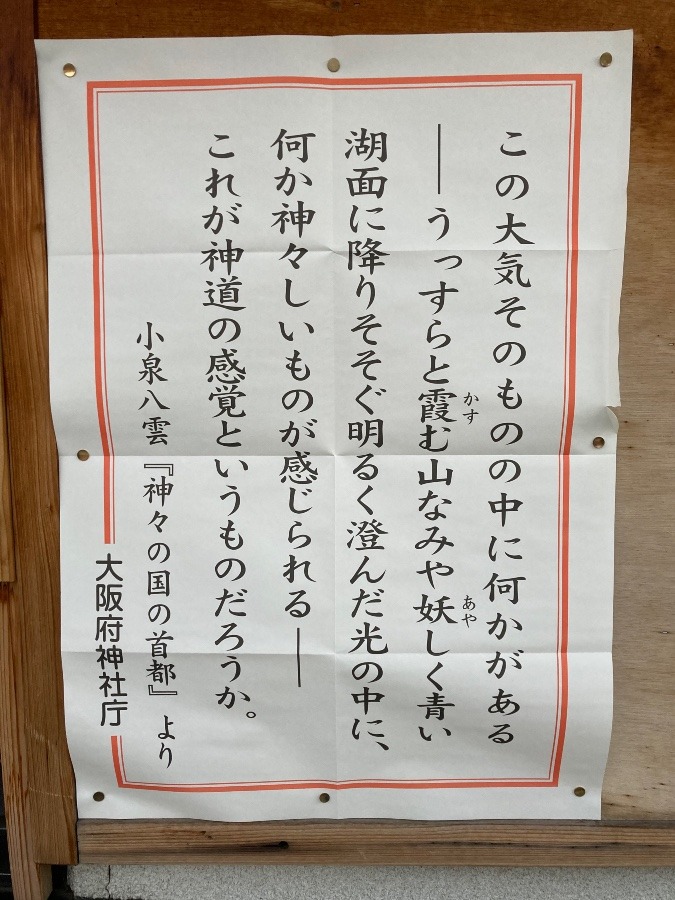 この大気そのものの中に何かがある
――うっすらと霞む山なみや妖しく青い
かす
あや
湖面に降りそそぐ明るく澄んだ光の中に、
何か神々しいものが感じられる――
これが神道の感覚というものだろうか。
小泉八雲『神々の国の首都』より
大阪府神社庁